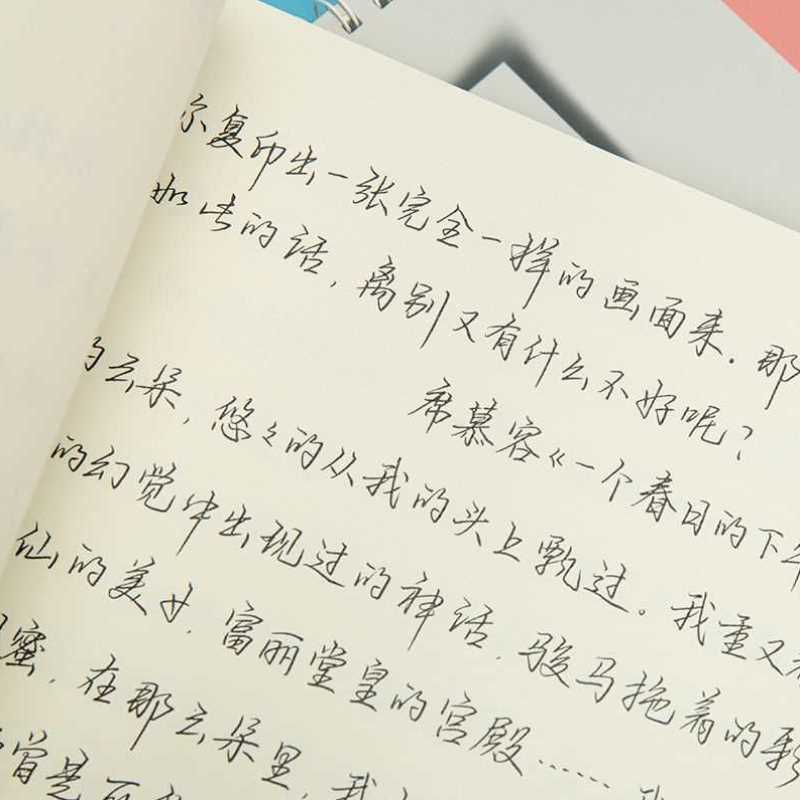 尔复印出一张完全一样的画面来.那
如此的话,离别又有什么不好呢?
席慕容《一个春日的下午
的云朵,悠々的从我的头上飘过。我重又
的幻觉中出现过的神话.骏马拖着的彩
仙的美女.富丽堂皇的宫殿……
蜜.在那云朵里,我
曾是